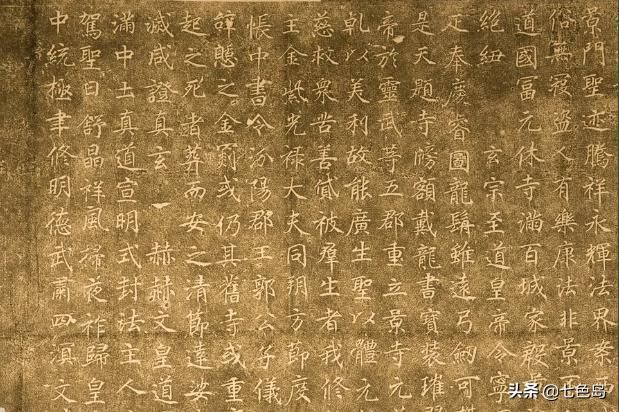 景門聖迹騰祥永輝法界案西
俗無寇盜人有樂康法非景
道國冨元休寺滿百城家殷
絶紐 玄宗至道皇帝令寧
疋奉慶睿圖龍髯雖遠弓劒可
是天題寺牓額戴龍書寶裝璀
帝於靈武等五郡重立景寺元
乹以美利故能廣生聖以體元
慈救衆苦善貸被羣生者我修
王金紫光祿大夫同朔方節度
帳中書令汾陽郡王郭公子儀
辭憩之金罽或仍其舊寺或重
起之死者葬而安之清節達娑
滅咸證真玄 赫赫文皇道
滿中土真道宣明式封法主人
駕聖日舒晶祥風掃夜祚歸皇
中統極聿修明德武肅四溟文
头条 @七色岛